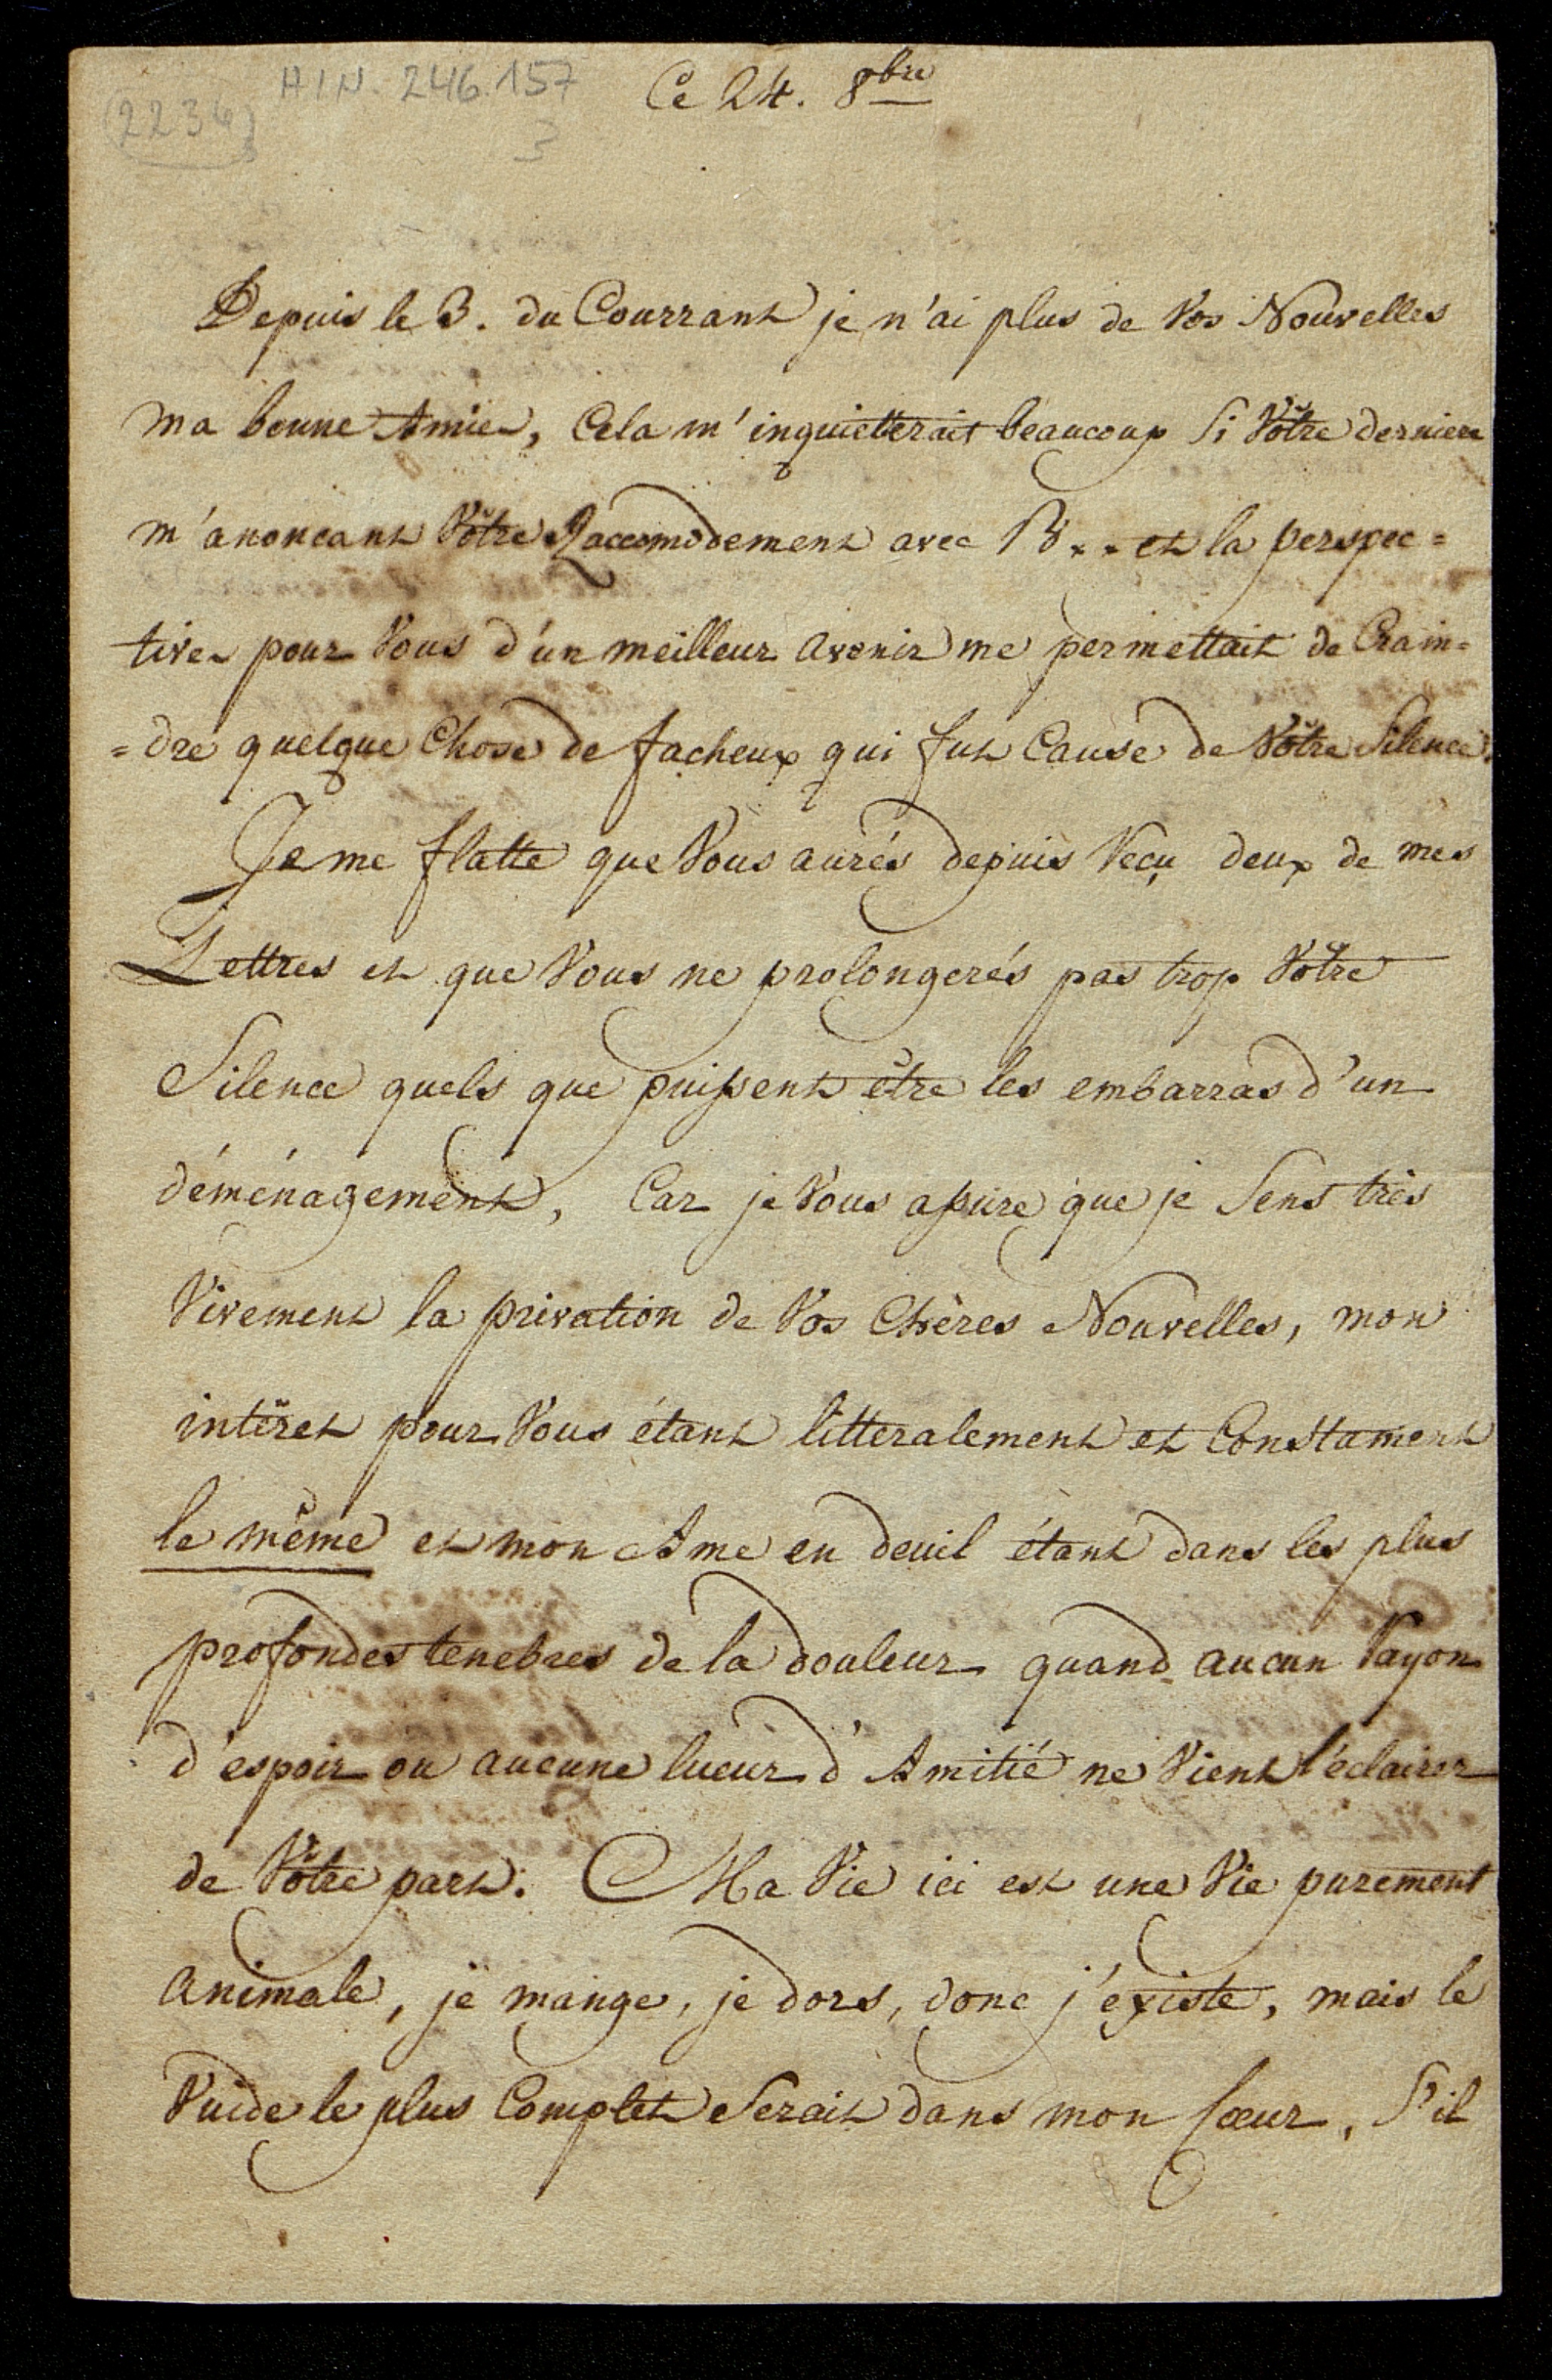 HIN. 246.157
(2234)
3
Ce 24. 8bre
Depuis le 3. du Courrant je n'ai plus de Vos Nouvelles
ma bonne Amie, Cela m'inquietterait beaucoup Si Vôtre derniere
m'anoncant Vôtre Raccomodement avec B... et la perspec=
tive pour Vous d'un meilleur avenir me permettait de Crain=
=dre quelque Chose de facheux qui fut Cause de Vôtre Silence.
Je me flatte que Vous aurés depuis reçu deux de mes
Lettres et que Vous ne prolongerés pas trop Vôtre
Silence quels que puissent être les embarras d'un
déménagement, Car je Vous assure que je Sens très
Vivement la privation de Vos Chères Nouvelles, mon
intêret pour Vous étant litteralement et Constament
le même et mon Ame en deuil étant dans les plus
profondes tenebres de la douleur quand aucun rayon
d'espoir ou aucune lueur d'Amitié ne Vient l'éclairer
de Vôtre part. Ma Vie ici est une Vie purement
animale, je mange, je dors, donc j'éxiste, mais le
Vuide le plus Complet Serait dans mon Cœur, S'il